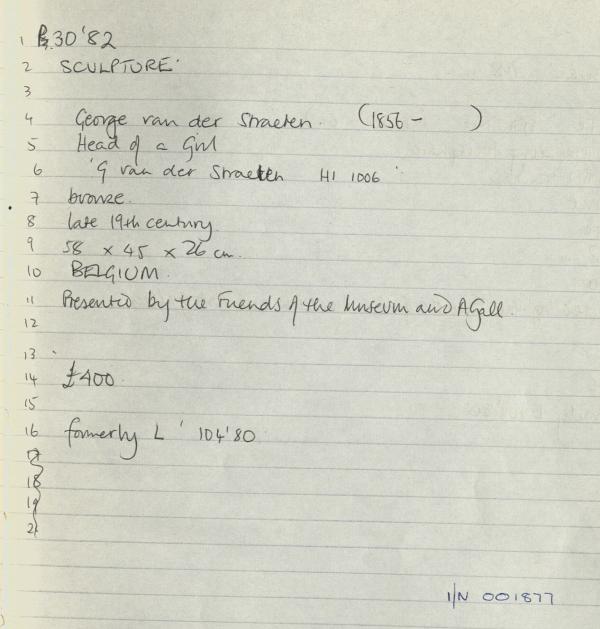 1 P.30'82
2 SCULPTURE
3
4 George van der Straeten. (1856 - )
5 Head of a Girl
6 'G van der Straeten H1 1006'
7 bronze.
8 late 19th century
9 58 x 45 x 26 cm.
10 BELGIUM.
11 Presented by the Friends of the Museum and A Gall.
12
13
14 £400.
15
16 formerly L '104'80
17
18
19
21
I/N 001877